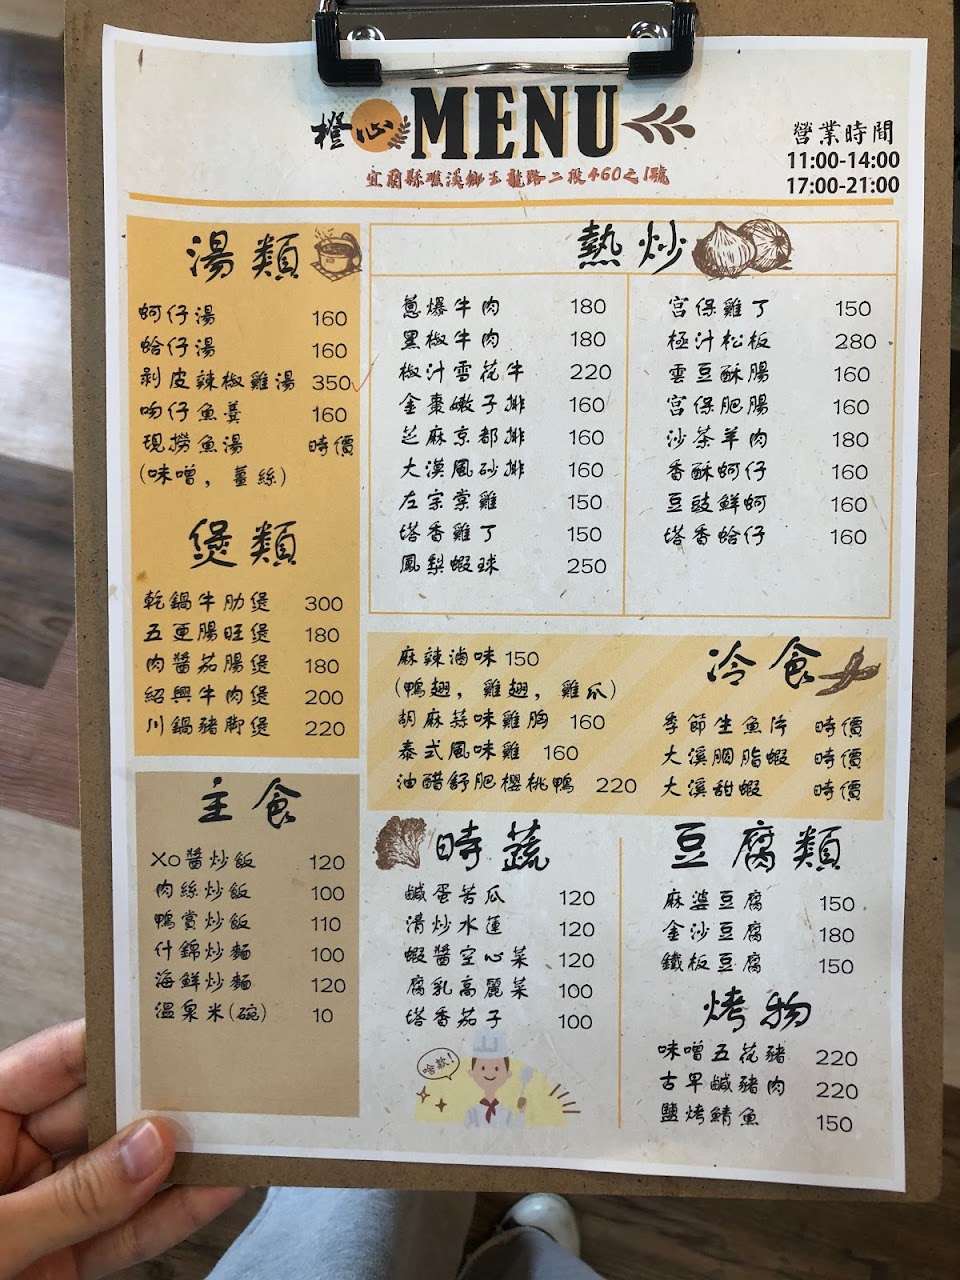 橙心 MENU
宜蘭縣礁溪鄉玉龍路二段460之1號
營業時間
11:00-14:00
17:00-21:00
湯類
蚵仔湯 160
蛤仔湯 160
剝皮辣椒雞湯 350
吻仔魚羹 160
現撈魚湯 時價
(味噌, 薑絲)
煲類
乾鍋牛肋煲 300
五更腸旺煲 180
肉醬茄腸煲 180
紹興牛肉煲 200
川鍋豬腳煲 220
主食
Xo醬炒飯 120
肉絲炒飯 100
鴨賞炒飯 110
什錦炒麵 100
海鮮炒麵 120
溫泉米(碗) 10
熱炒
蔥爆牛肉 180
黑椒牛肉 180
椒汁雪花牛 220
金棗嫩子排 160
芝麻京都排 160
大漠風砂排 160
左宗棠雞 150
塔香雞丁 150
鳳梨蝦球 250
宮保雞丁 150
極汁松板 280
雲豆酥腸 160
宮保肥腸 160
沙茶羊肉 180
香酥蚵仔 160
豆豉鮮蚵 160
塔香蛤仔 160
冷食
麻辣滷味 150
(鴨翅, 雞翅, 雞爪)
胡麻蒜味雞胸 160
泰式風味雞 160
油醋舒肥櫻桃鴨 220
季節生魚片 時價
大溪胭脂蝦 時價
大溪甜蝦 時價
時蔬
鹹蛋苦瓜 120
清炒水蓮 120
蝦醬空心菜 120
腐乳高麗菜 100
塔香茄子 100
啥款!
豆腐類
麻婆豆腐 150
金沙豆腐 180
鐵板豆腐 150
烤物
味噌五花豬 220
古早鹹豬肉 220
鹽烤鯖魚 150